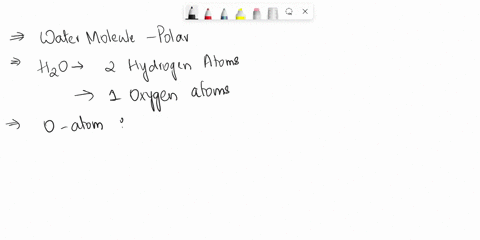 ⇒ Water Molecule - Polar
⇒ H₂O → 2 Hydrogen Atoms
→ 1 Oxygen atoms
⇒ O - atom :